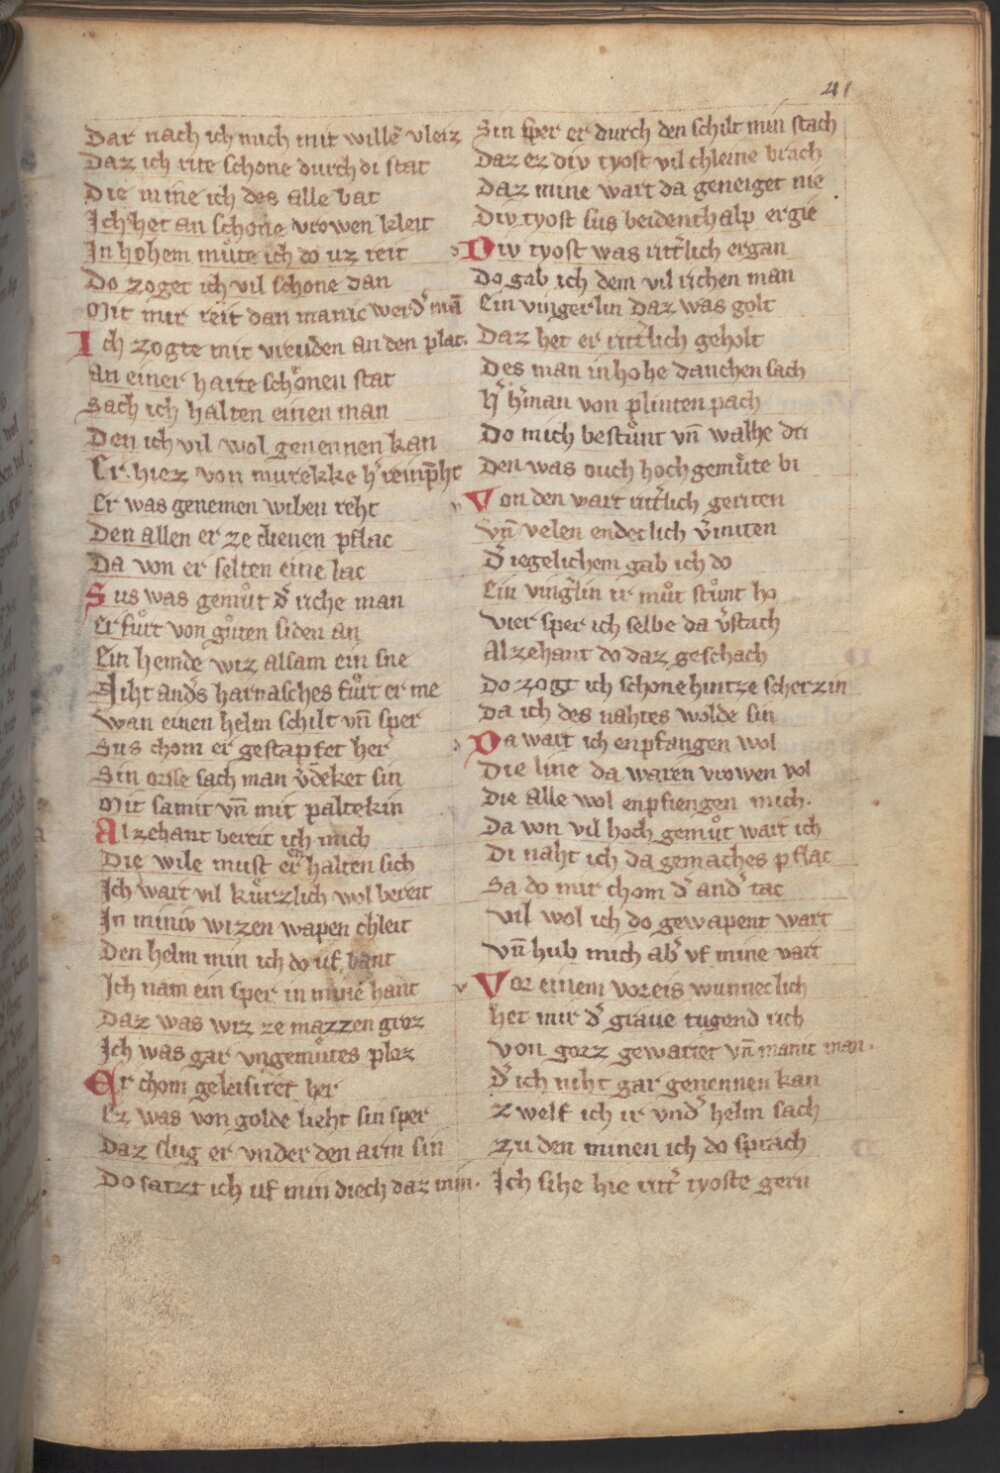 41
Dar nach ich mich mit willē vleiz
Daz ich rite schone durch di stat
Die mine ich des alle bat
Ich het an schone vrowen kleit
In hohem můte ich do uz reit
Do zoget ich vil schone dan
Mit mir reit dan manic werd̾ man
Ich zogte mit vreuden an den plac.
An einer harte schönen stat
Sach ich halten einen man
Den ich vil wol genennen kan
Er hiez von murekke h̾ reinp̾ht
Er was genemen wiben reht
Den allen er ze dienen pflac
Da von er selten eine lac
Sus was gemůt d̾ riche man
Er fůrt von gůten siden an
Ein hemde wiz alsam ein sne
Niht and̾s harnasches fůrt er me
Wan einen helm schilt vn̄ sper
Sus chom er gestapfet her
Sin orsse sach man v̾deket sin
Mit samit vn̄ mit paltekin
Alzehant bereit ich mich
Die wile must er halten sich
Ich wart vil kůrzlich wol bereit
In miniv wizen wapen chleit
Den helm min ich do uf bant
Ich nam ein sper in mine hant
Daz was wiz ze mazzen groz
Ich was gar vngemůtes ploz
Er chom geleisiret her
Ez was von golde lieht sin sper
Daz slug er vnder den arm sin
Do satzt ich uf min diech daz min.
Sin sper er durch den schilt min stach
Daz ez div tyost vil chleine brach
Daz mine wart da geneiget nie
Div tyost sus beidenthalp ergie
Div tyost was ritt̾lich ergan
Do gab ich dem vil richen man
Ein vingerlin daz was golt
Daz het er ritt̾lich geholt
Des man in hohe dauchen sach
H̾ h̾man von plinten pach
Do mich bestůnt vn̄ walhe dri
Den was ouch hochgemůte bi
Von den wart ritt̾lich geriten
Vn̄ velen endeclich v̾miten
D̾ iegelichem gab ich do
Ein ving̾lin ir můt stůnt ho
Vier sper ich selbe da v̾stach
Alzehant do daz geschach
Do zogt ich schone hintze scherzin
Da ich des nahtes wolde sin
Da wart ich enpfangen wol
Die line da waren vrowen vol
Die alle wol enpfiengen mich.
Da von vil hoch gemůt wart ich
Di naht ich da gemaches pflac
Sa do mir chom d̾ and̾ tac
Vil wol ich do gewapent wart
Vn̄ hub mich ab̾ uf mine vart
Vor einem voreis wunneclich
Het mir d̾ graue tugend rich
Von gorz gewartet vn̄ manic man.
D̾ ich niht gar genennen kan
Zwelf ich ir vnd̾ helm sach
Zu den minen ich do sprach
Ich sihe hie ritt̾ tyoste gern